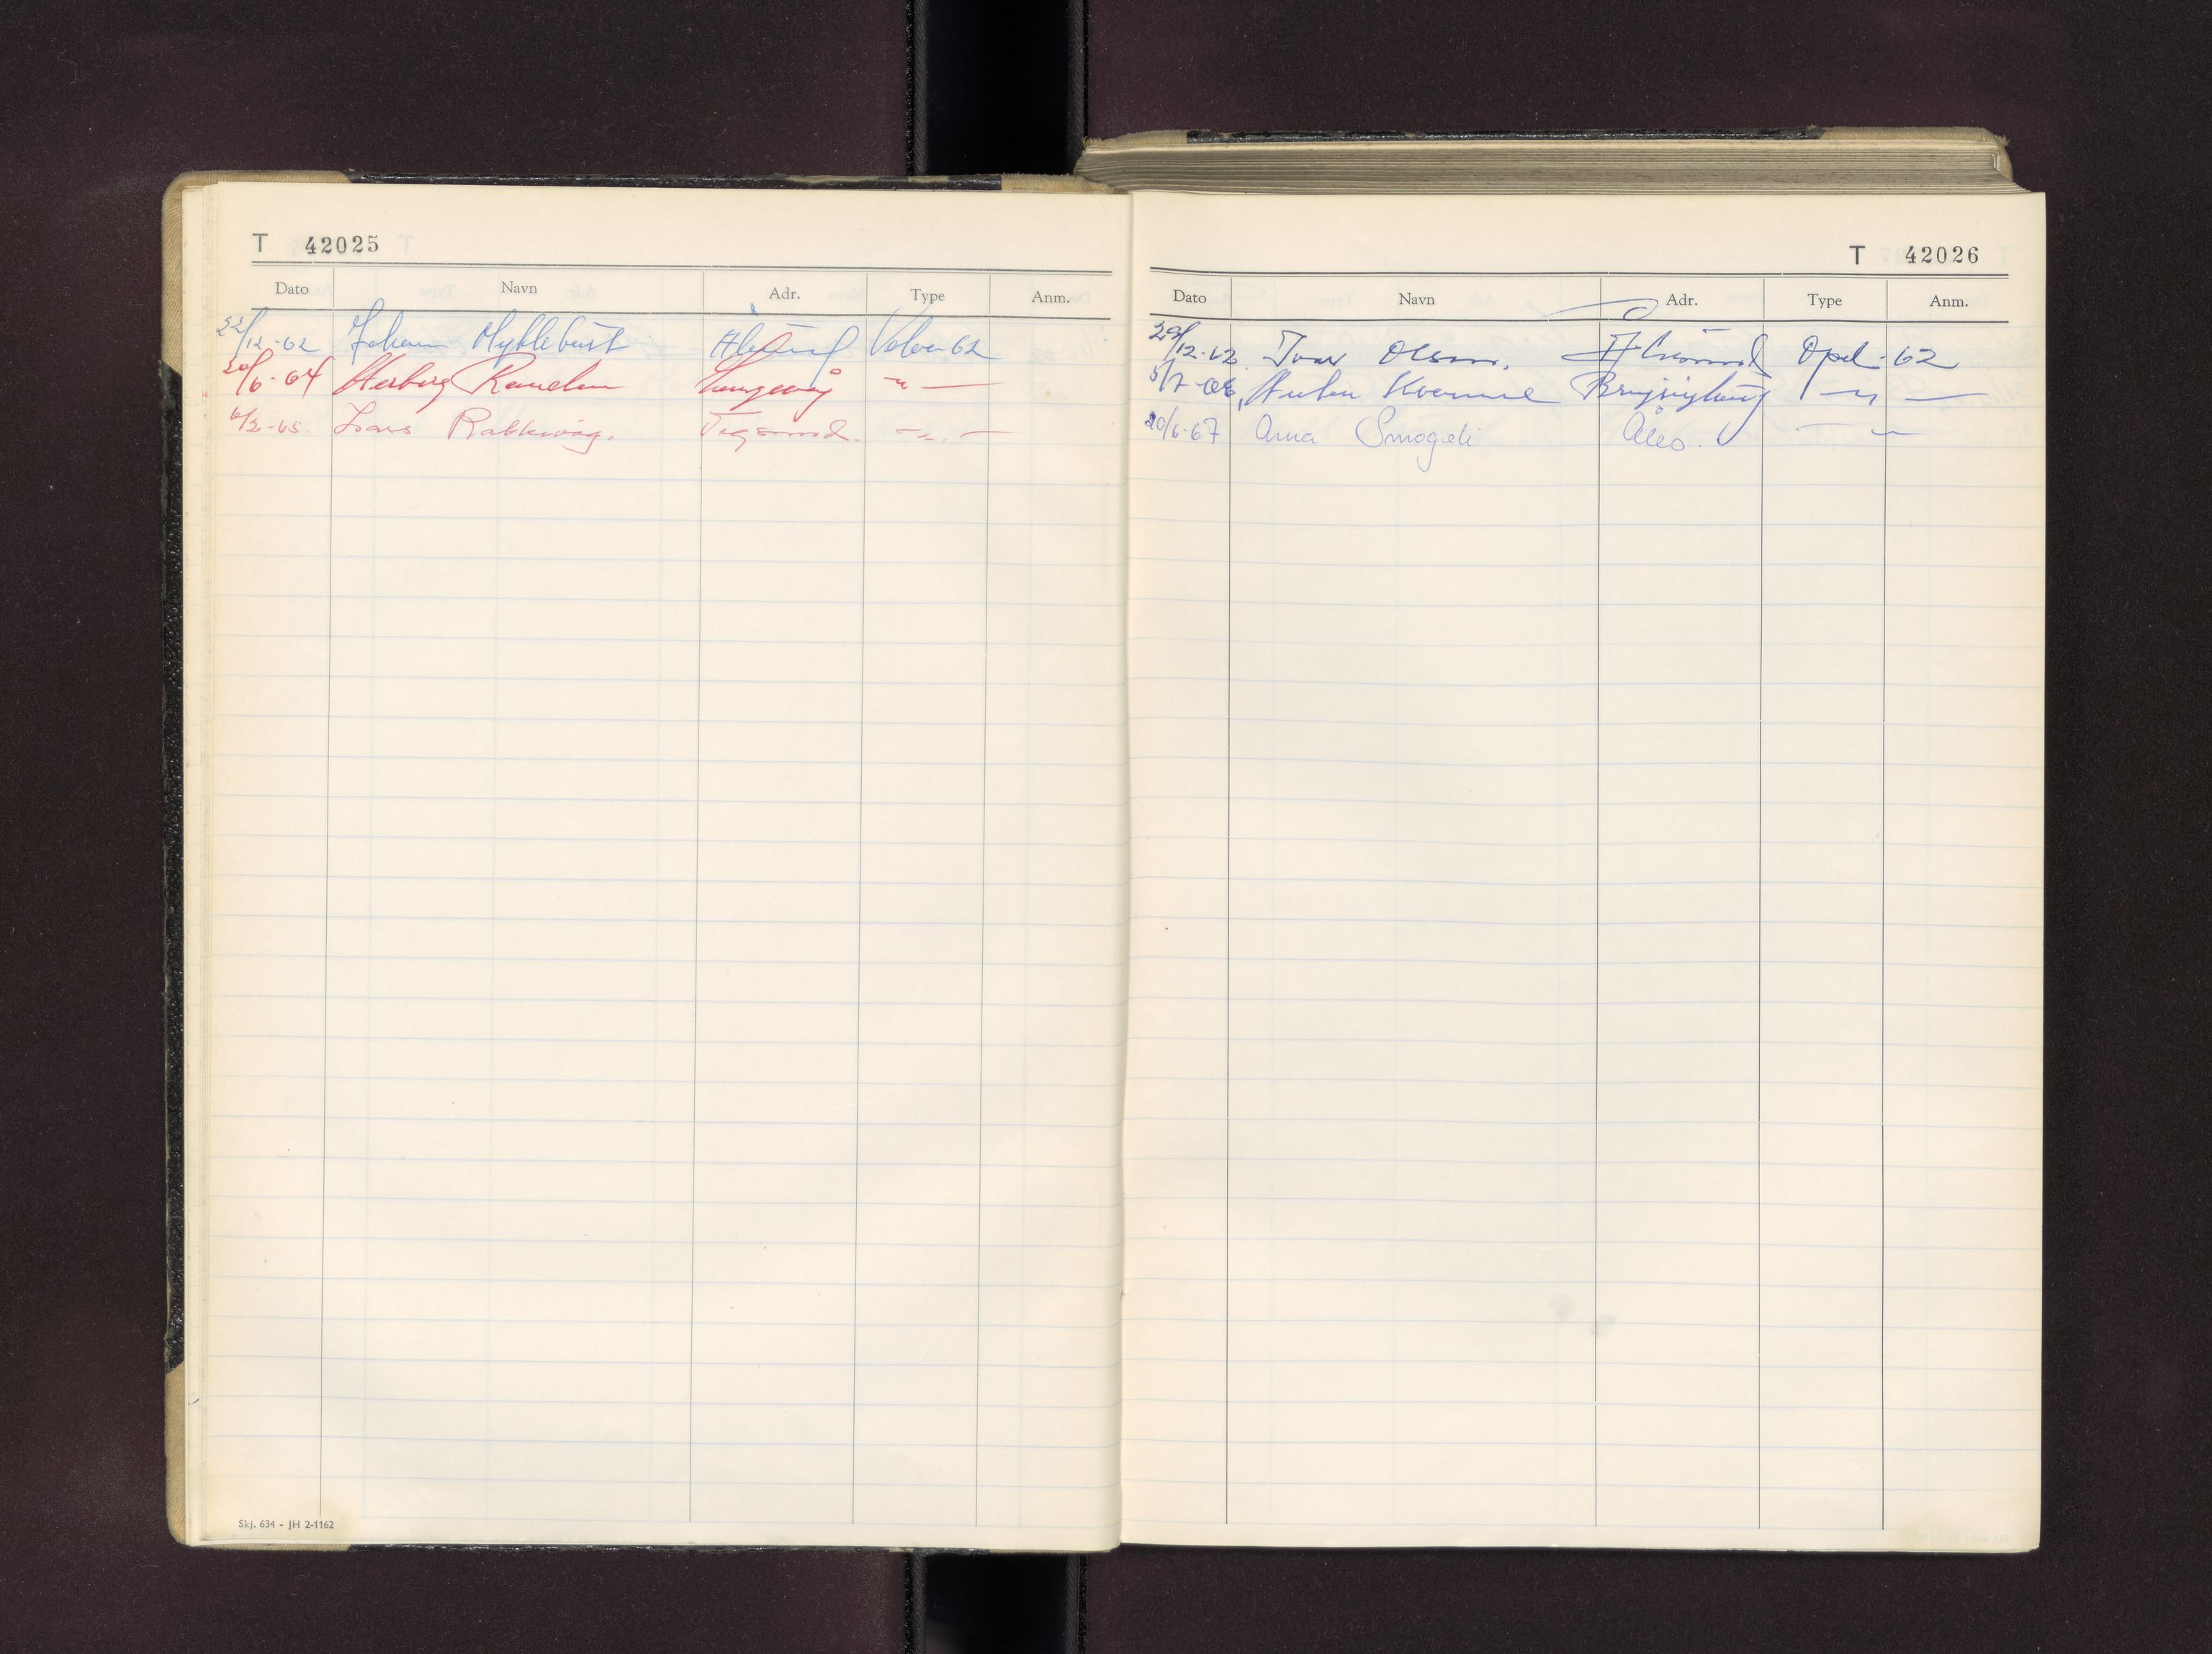 T 42025
Dato Navn Adr. Type Anm.
22/12-62 Johan Myklebust Ålesund Volvo 62
20/6-64 Herborg -"-
6/2-65 Lars Rabbevåg. -"-
Skj. 634 - JH 2-1162
T 42026
Dato Navn Adr. Type Anm.
29/12-62. Ivar Olsen. Ålesund Opel-62
5/7- Anton -"-
20/6-67 Anna Smogeli Åles. -"-